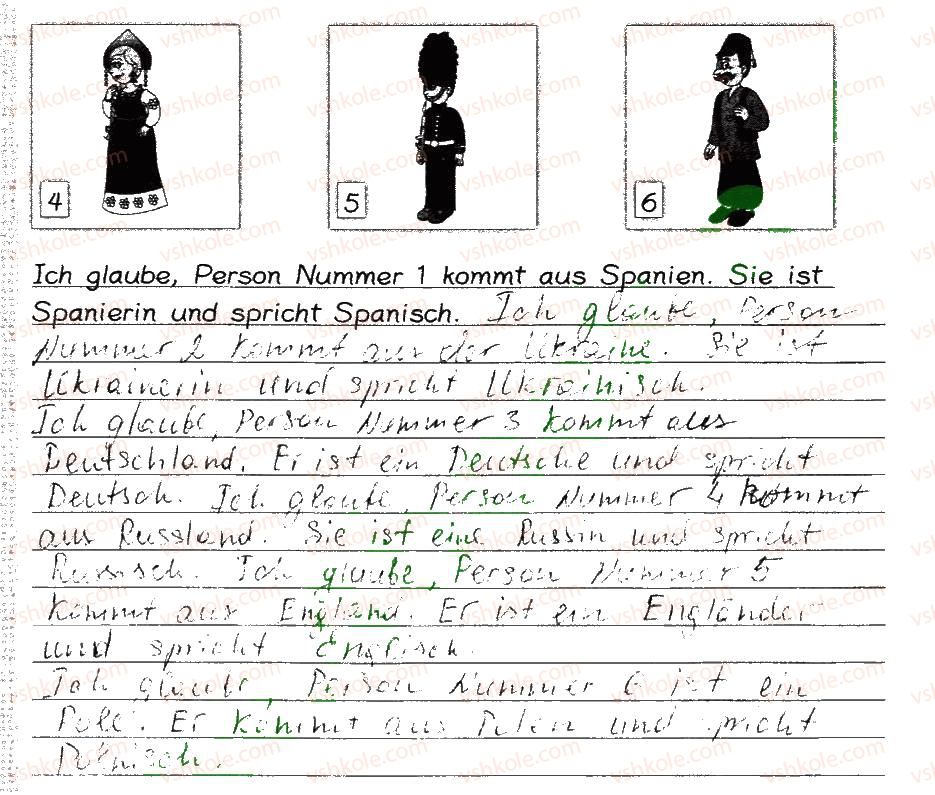 4
5
6
Ich glaube, Person Nummer 1 kommt aus Spanien. Sie ist
Spanierin und spricht Spanisch. Ich glaube, Person
Nummer 2 kommt aus der Ukraine. Sie ist
Ukrainerin und spricht Ukrainisch.
Ich glaube, Person Nummer 3 kommt aus
Deutschland. Er ist ein Deutsche und spricht
Deutsch. Ich glaube, Person Nummer 4 kommt
aus Russland. Sie ist eine Russin und spricht
Russisch. Ich glaube, Person Nummer 5
kommt aus England. Er ist ein Engländer
und spricht Englisch.
Ich glaube, Person Nummer 6 ist ein
Pole. Er kommt aus Polen und spricht
Polnisch.